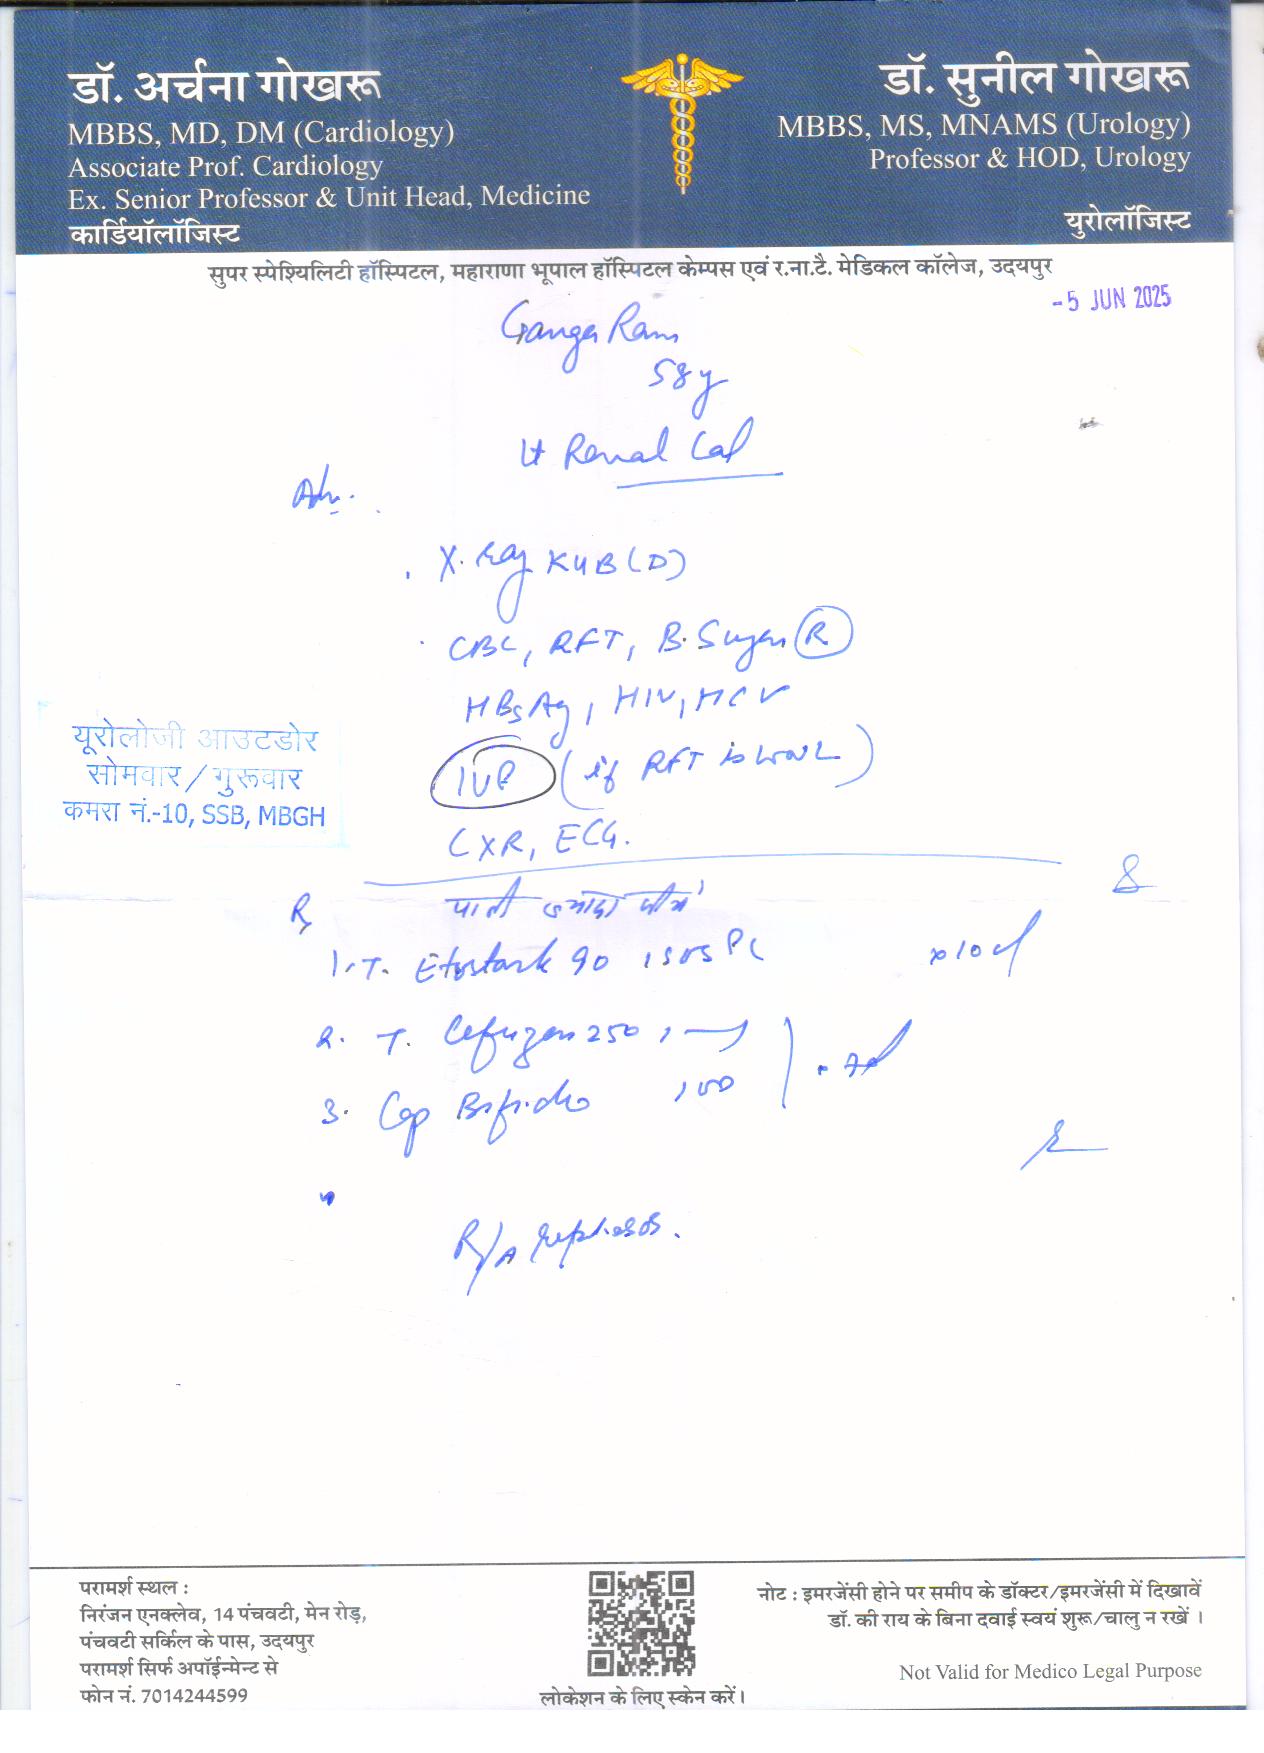 डॉ. अर्चना गोखरू
MBBS, MD, DM (Cardiology)
Associate Prof. Cardiology
Ex. Senior Professor & Unit Head, Medicine
कार्डियॉलॉजिस्ट
डॉ. सुनील गोखरू
MBBS, MS, MNAMS (Urology)
Professor & HOD, Urology
युरोलॉजिस्ट
सुपर स्पेश्यिलिटी हॉस्पिटल, महाराणा भूपाल हॉस्पिटल केम्पस एवं र.ना.टै. मेडिकल कॉलेज, उदयपुर
-5 JUN 2025
Ganga Ram
58y
Lt Renal Cal
Adv.
X. Ray KUB (D)
CBC, RFT, B. Sugar (R)
HBsAg, HIV, HCV
IVP (if RFT is WNL)
CXR, ECG.
यूरोलोजी आउटडोर
सोमवार / गुरूवार
कमरा नं.-10, SSB, MBGH
Rx
पानी ज्यादा पीये
1. T. Etostark 90 1 SOS PC x10d
2. T. Cefuzen 250
3. Cap Bifido 1 OD
7d
R/A
परामर्श स्थल :
निरंजन एनक्लेव, 14 पंचवटी, मेन रोड़,
पंचवटी सर्किल के पास, उदयपुर
परामर्श सिर्फ अपॉईन्मेन्ट से
फोन नं. 7014244599
लोकेशन के लिए स्केन करें।
नोट : इमरजेंसी होने पर समीप के डॉक्टर/इमरजेंसी में दिखावें
डॉ. की राय के बिना दवाई स्वयं शुरू/चालु न रखें ।
Not Valid for Medico Legal Purpose